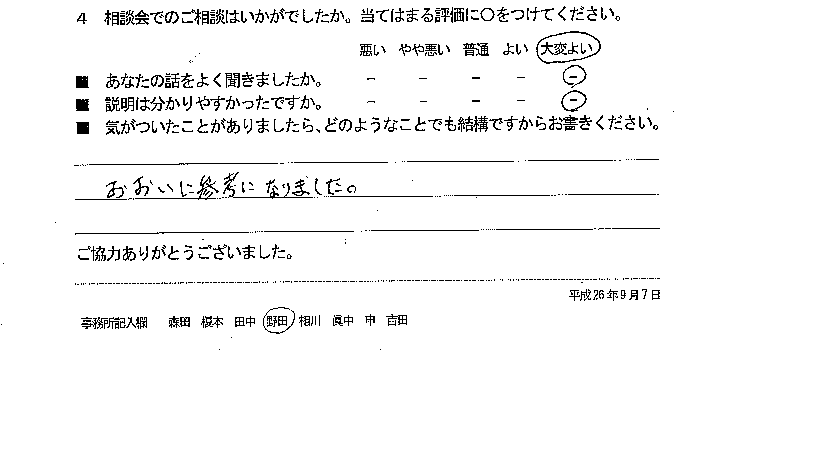 4 相談会でのご相談はいかがでしたか。当てはまる評価に○をつけてください。
悪い やや悪い 普通 よい 大変よい
■ あなたの話をよく聞きましたか。 − − − − −
■ 説明は分かりやすかったですか。 − − − − −
■ 気がついたことがありましたら、どのようなことでも結構ですからお書きください。
おおいに参考になりました。
ご協力ありがとうございました。
平成26年9月7日
事務所記入欄 森田 榎本 田中 野田 相川 眞中 申 吉田